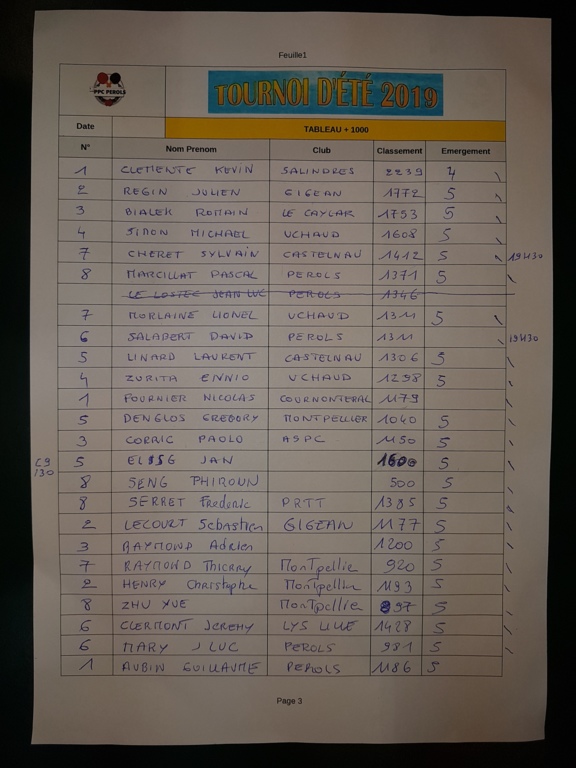 Feuille1
PPC PEROLS
TOURNOI D'ÉTÉ 2019
Date
TABLEAU + 1000
N° Nom Prenom Club Classement Emergement
1 CLEMENTE KEVIN SALINDRES 2239 4
2 REGIN JULIEN GIGEAN 1772 5
3 BIALEK ROMAIN LE CAYLAR 1753 5
4 SIMON MICHAEL UCHAUD 1608 5
7 CHERET SYLVAIN CASTELNAU 1412 5 19H30
8 MARCILLAT PASCAL PEROLS 1371 5
LE LOSTEC JEAN LUC PEROLS 1346
7 MORLAINE LIONEL UCHAUD 1311 5
6 SALABERT DAVID PEROLS 1311 19H30
5 LINARD LAURENT CASTELNAU 1306 5
4 ZURITA ENNIO UCHAUD 1298 5
1 FOURNIER NICOLAS COURNONTERAL 1179
5 DENGLOS GREGORY MONTPELLIER 1040 5
3 CORRIC PAOLO ASPC 1150 5
5 JAN 5
8 SENG PHIROUN 500 5
8 SERRET Frederic PRTT 1385 5
2 LECOURT Sebastien GIGEAN 1177 5
3 RAYMOND Adrien 1200 5
7 RAYMOND Thierry MonTpellie 920 5
2 HENRY Christophe MonTpellie 1193 5
8 ZHU YUE MonTpellie 897 5
6 CLERMONT JEREMY LYS LILLE 1428 5
6 MARY J LUC PEROLS 981 5
1 AUBIN GUILLAUME PEROLS 1186 5
Page 3